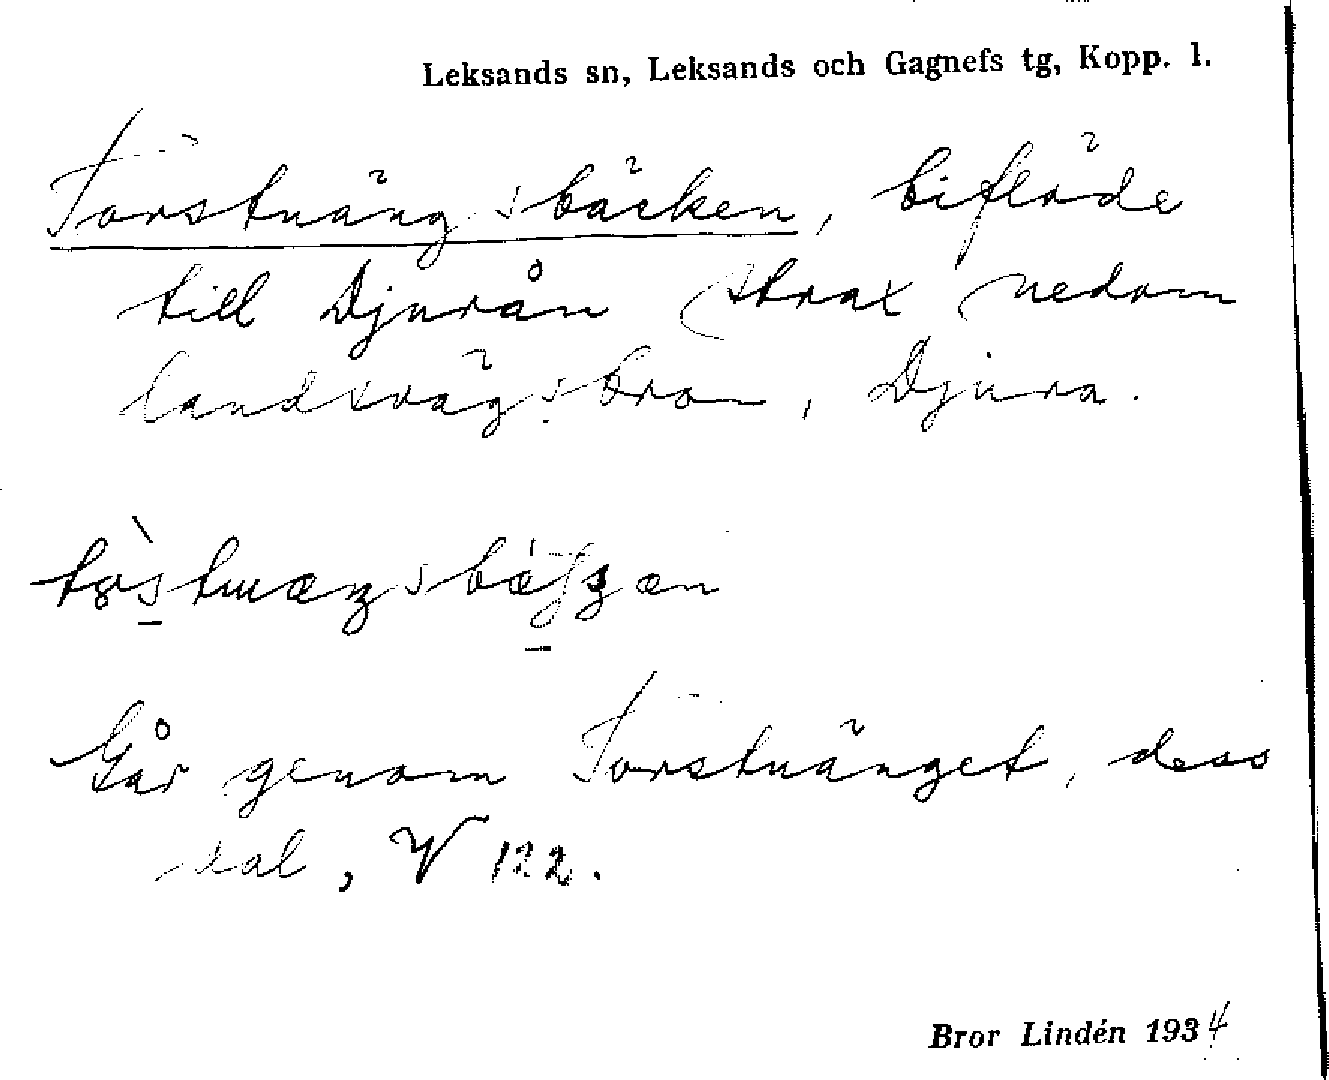 Leksands sn, Leksands och Gagnefs tg, Kopp. l.
Torstnängsbäcken, biflöde
till Djurån strax nedom
landsvägsbron, Djura.
Går genom Torstnänget, dess
val, W 122.
Bror Lindén 1934